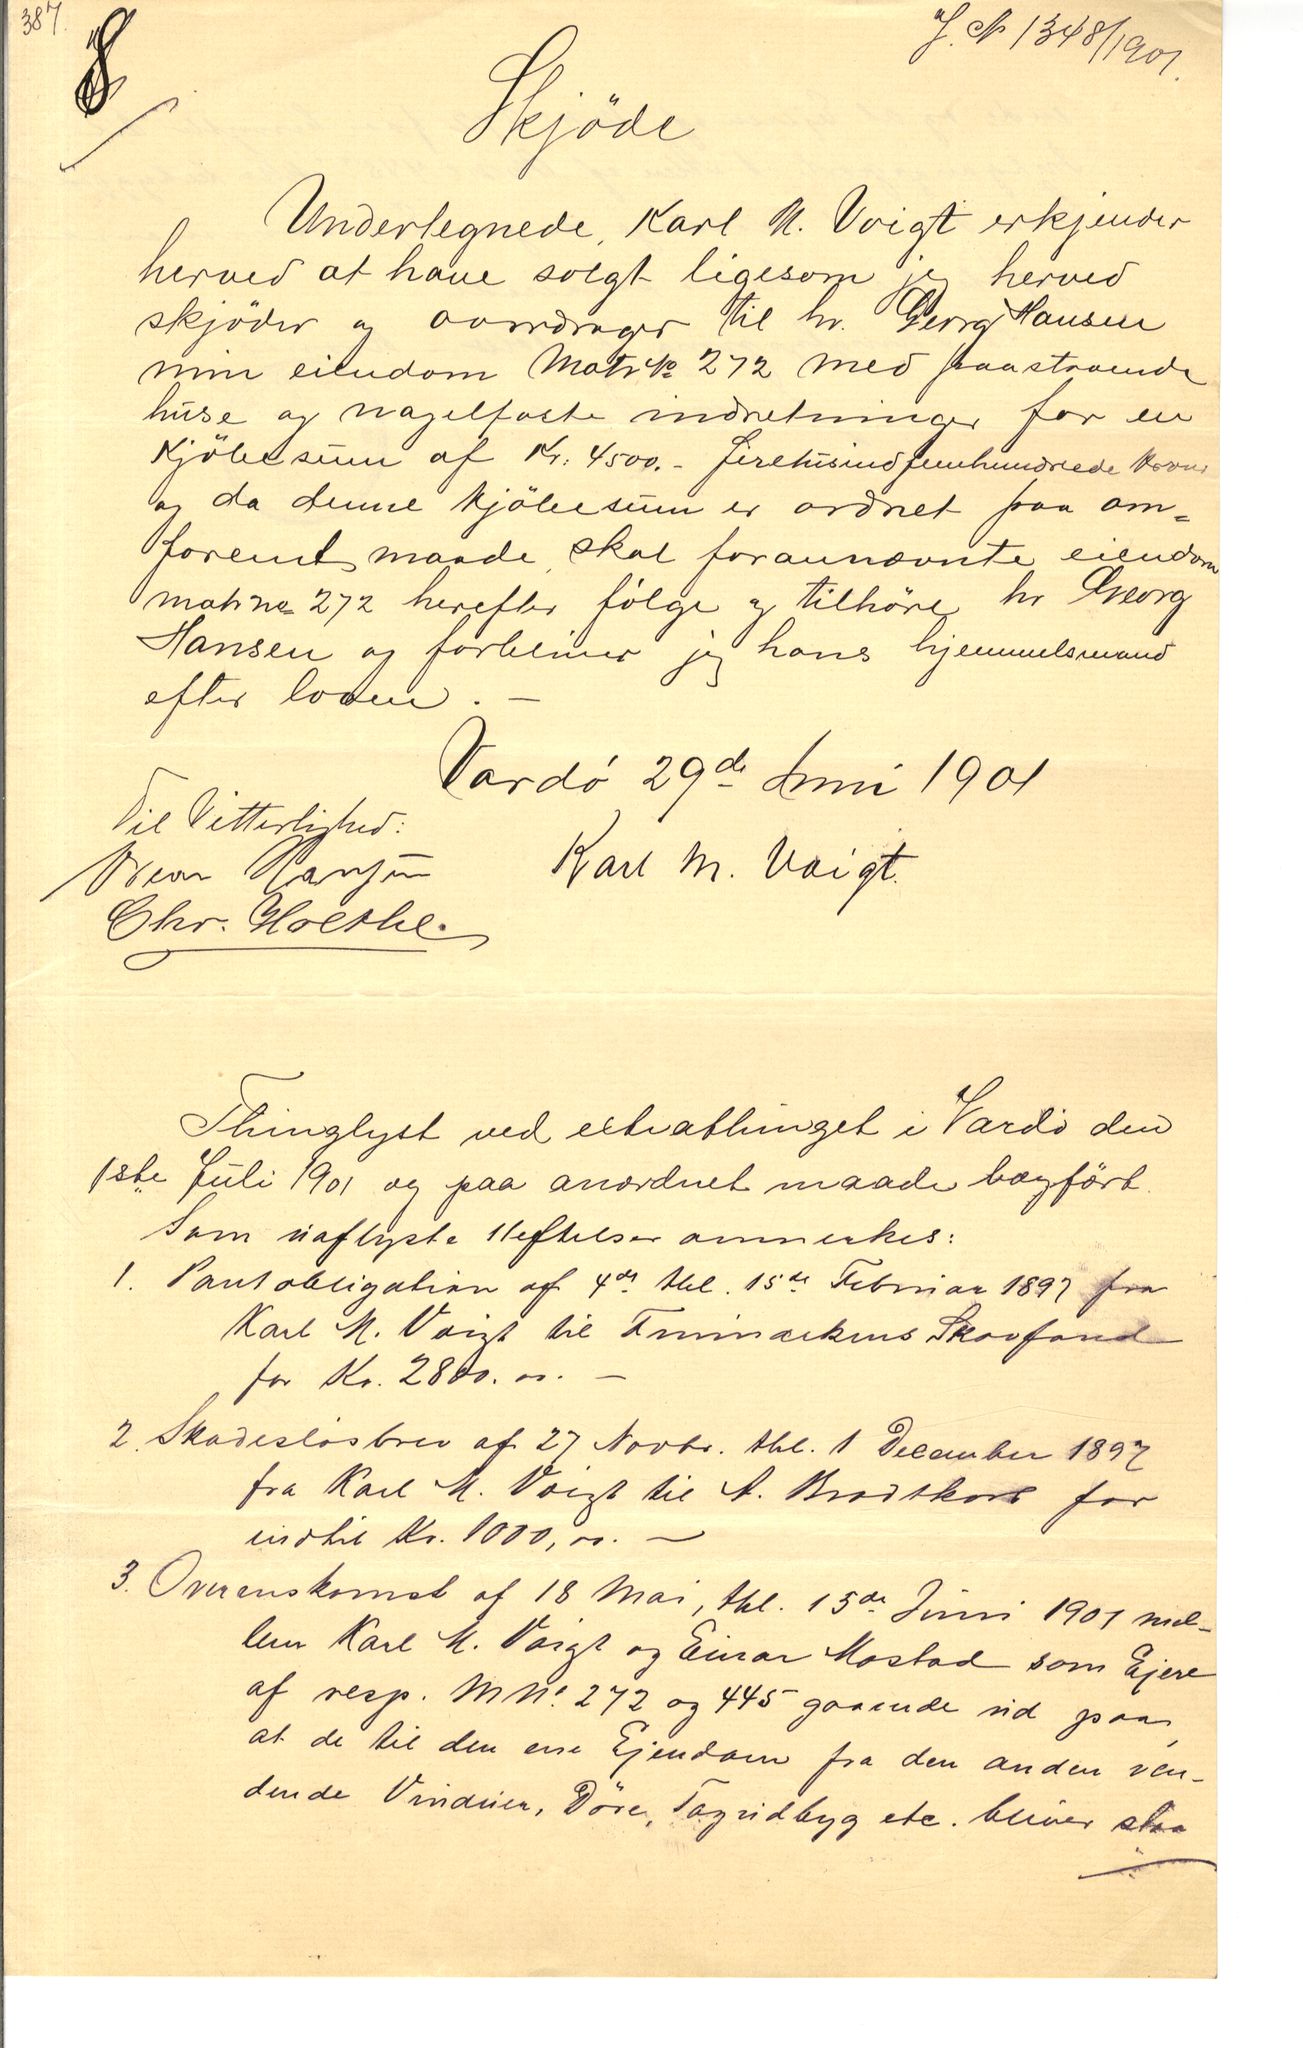 387.
J. N 1348/1901.
Skjöde
Underlegnede, Karl M. Voigt erkjender
herved at have solgt ligesom jeg herved
skjöder og overdrager til hr. Georg Hansen
min eiendom Matr. No 272 med paastaaende
huse og nagelfaste indretninger for en
Kjöbesum af Kr: 4500.- firetusindfemhundrede Kroner
og da denne Kjöbesum er ordnet paa om=
forent maade, skal forannævnte eiendom
matr no 272 herefter følge og tilhöre hr Georg
Hansen og forbliver jeg hans hjemmelsmand
efter loven. -
Vardó 29de Juni 1901
Til Vitterlighed:
Karl M. Voigt.
Chr. Holthe.
Thinglyst ved extrathinget i Vardö den
1ste Juli 1901 og paa anordnet maade bogfört.
Som uaflyste Heftelser anmerkes:
1. Pantobligation af 4de thl. 15de Februar 1897 fra
Karl M. Voigt til Finmarkens Skovfond
for Kr. 2800.00. -
2. Skadeslösbrev af 27 Novbr. thl. 1 December 1897
fra Karl M. Voigt til A. Brodtkorb for
indtil Kr. 1000,00. -
3. Overenskomst af 18 Mai, thl. 15de Juni 1901 mel-
lem Karl M. Voigt og Einar Mostad som Ejere
af resp. M No. 272 og 445 gaaende ud paa,
at de til den ene Ejendom fra den anden ven-
dende Vinduer, Döre, Tagudbyg etc. bliver staa